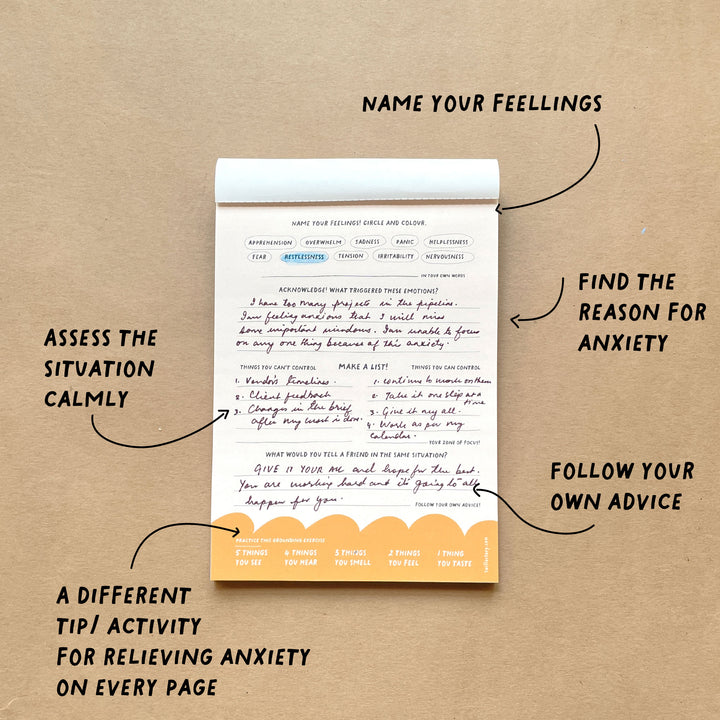 NAME YOUR FEELLINGS
NAME YOUR FEELINGS! CIRCLE AND COLOUR.
APPREHENSION OVERWHELM SADNESS PANIC HELPLESSNESS
FEAR RESTLESSNESS TENSION IRRITABILITY NERVOUSNESS
IN YOUR OWN WORDS
ACKNOWLEDGE! WHAT TRIGGERED THESE EMOTIONS?
I have too many projects in the pipeline.
I am feeling anxious that I will miss
some important windows. I am unable to focus
on any one thing because of this anxiety.
FIND THE
REASON FOR
ANXIETY
ASSESS THE
SITUATION
CALMLY
THINGS YOU CAN'T CONTROL
MAKE A LIST!
THINGS YOU CAN CONTROL
1. Vendors timelines.
2. Client feedback
3. Changes in the brief
after my work is done.
1. continue to work on them
2. Take it one step at a
time
3. Give it my all.
4. Work as per my
calendar.
YOUR ZONE OF FOCUS!
WHAT WOULD YOU TELL A FRIEND IN THE SAME SITUATION?
GIVE IT YOUR ALL and hope for the best.
You are working hard and it's going to all
happen for you.
FOLLOW YOUR OWN ADVICE!
FOLLOW YOUR
OWN ADVICE
PRACTICE THIS GROUNDING EXERCISE
5 THINGS
YOU SEE
4 THINGS
YOU HEAR
3 THINGS
YOU SMELL
2 THINGS
YOU FEEL
1 THING
YOU TASTE
A DIFFERENT
TIP/ ACTIVITY
FOR RELIEVING ANXIETY
ON EVERY PAGE